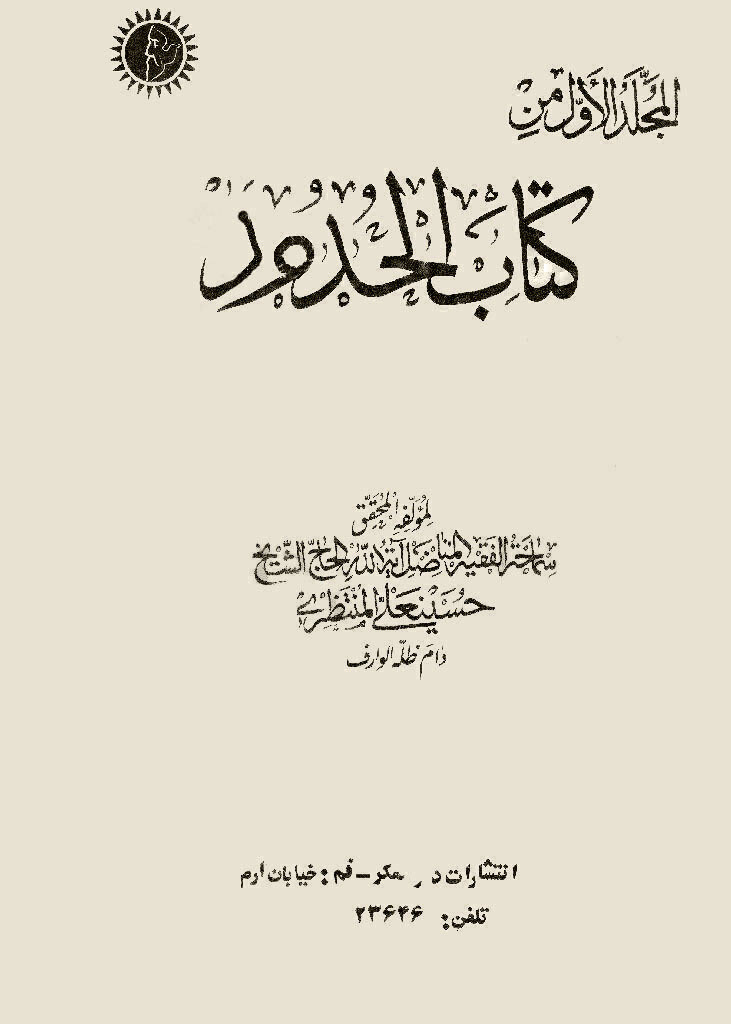 المجلد الأول من
كتاب الحدود
لمؤلفه المحقق
سماحة الفقيه المناضل آية الله الحاج الشيخ
حسينعلى المنتظرى
دام ظله الوارف
انتشارات د ر فكر – قم : خیابان ارم
تلفن: ۲۳۶۴۶